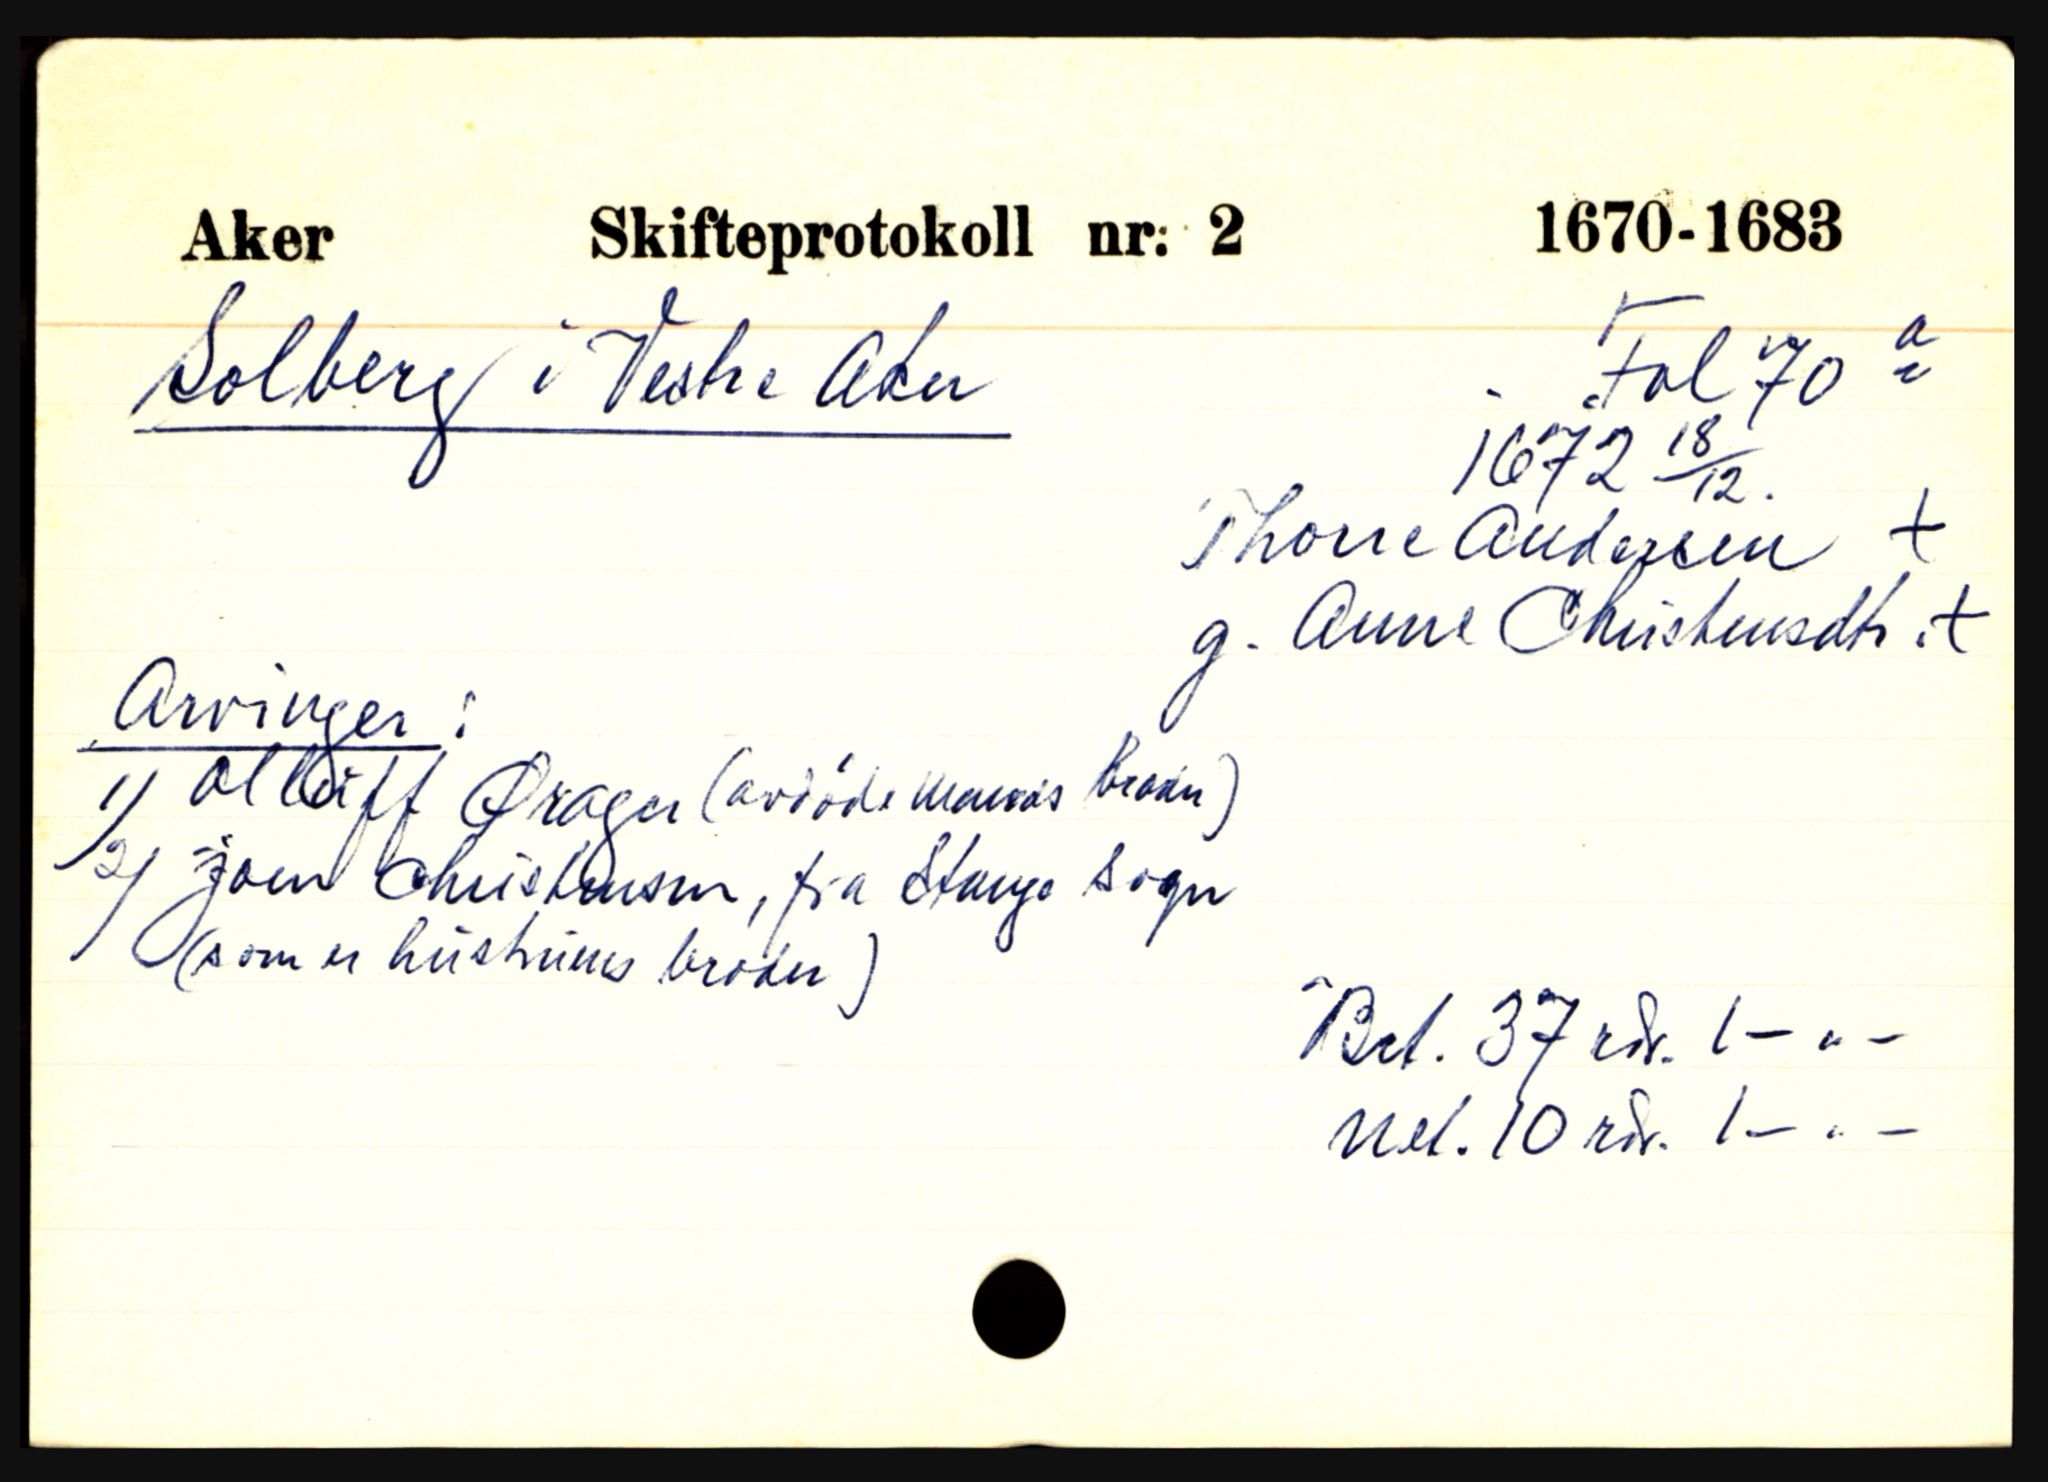 Aker Skifteprotokoll nr: 2 1670-1683
Solberg i Vestre Aker
Fol 70 a
1672 18/12.
Thorre Andersen +
g. Anne Christensdtr. +
Arvinger:
1/ olluff Ørager (avdöde manns broder)
2/ Joen Christensen, fra Stange Sogn
(som er hustruens broder)
Brt. 37 rdr. 1 - " -
Net. 10 rdr. 1 - " -